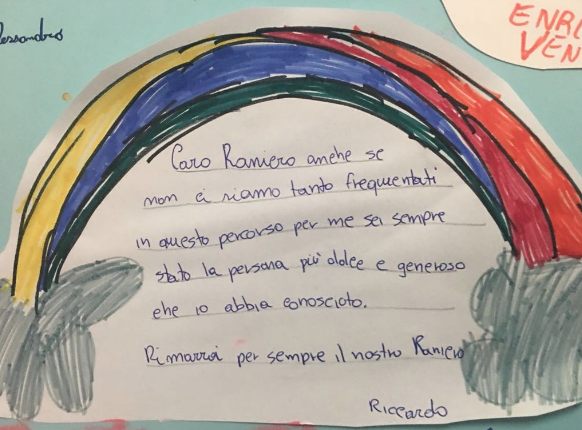 ENRI
VEN
Caro Raniero anche se
non ci siamo tanto frequentati
in questo percorso per me sei sempre
stato la persona più dolce e generoso
che io abbia conoscioto.
Rimarrai per sempre il nostro Raniero
Riccardo